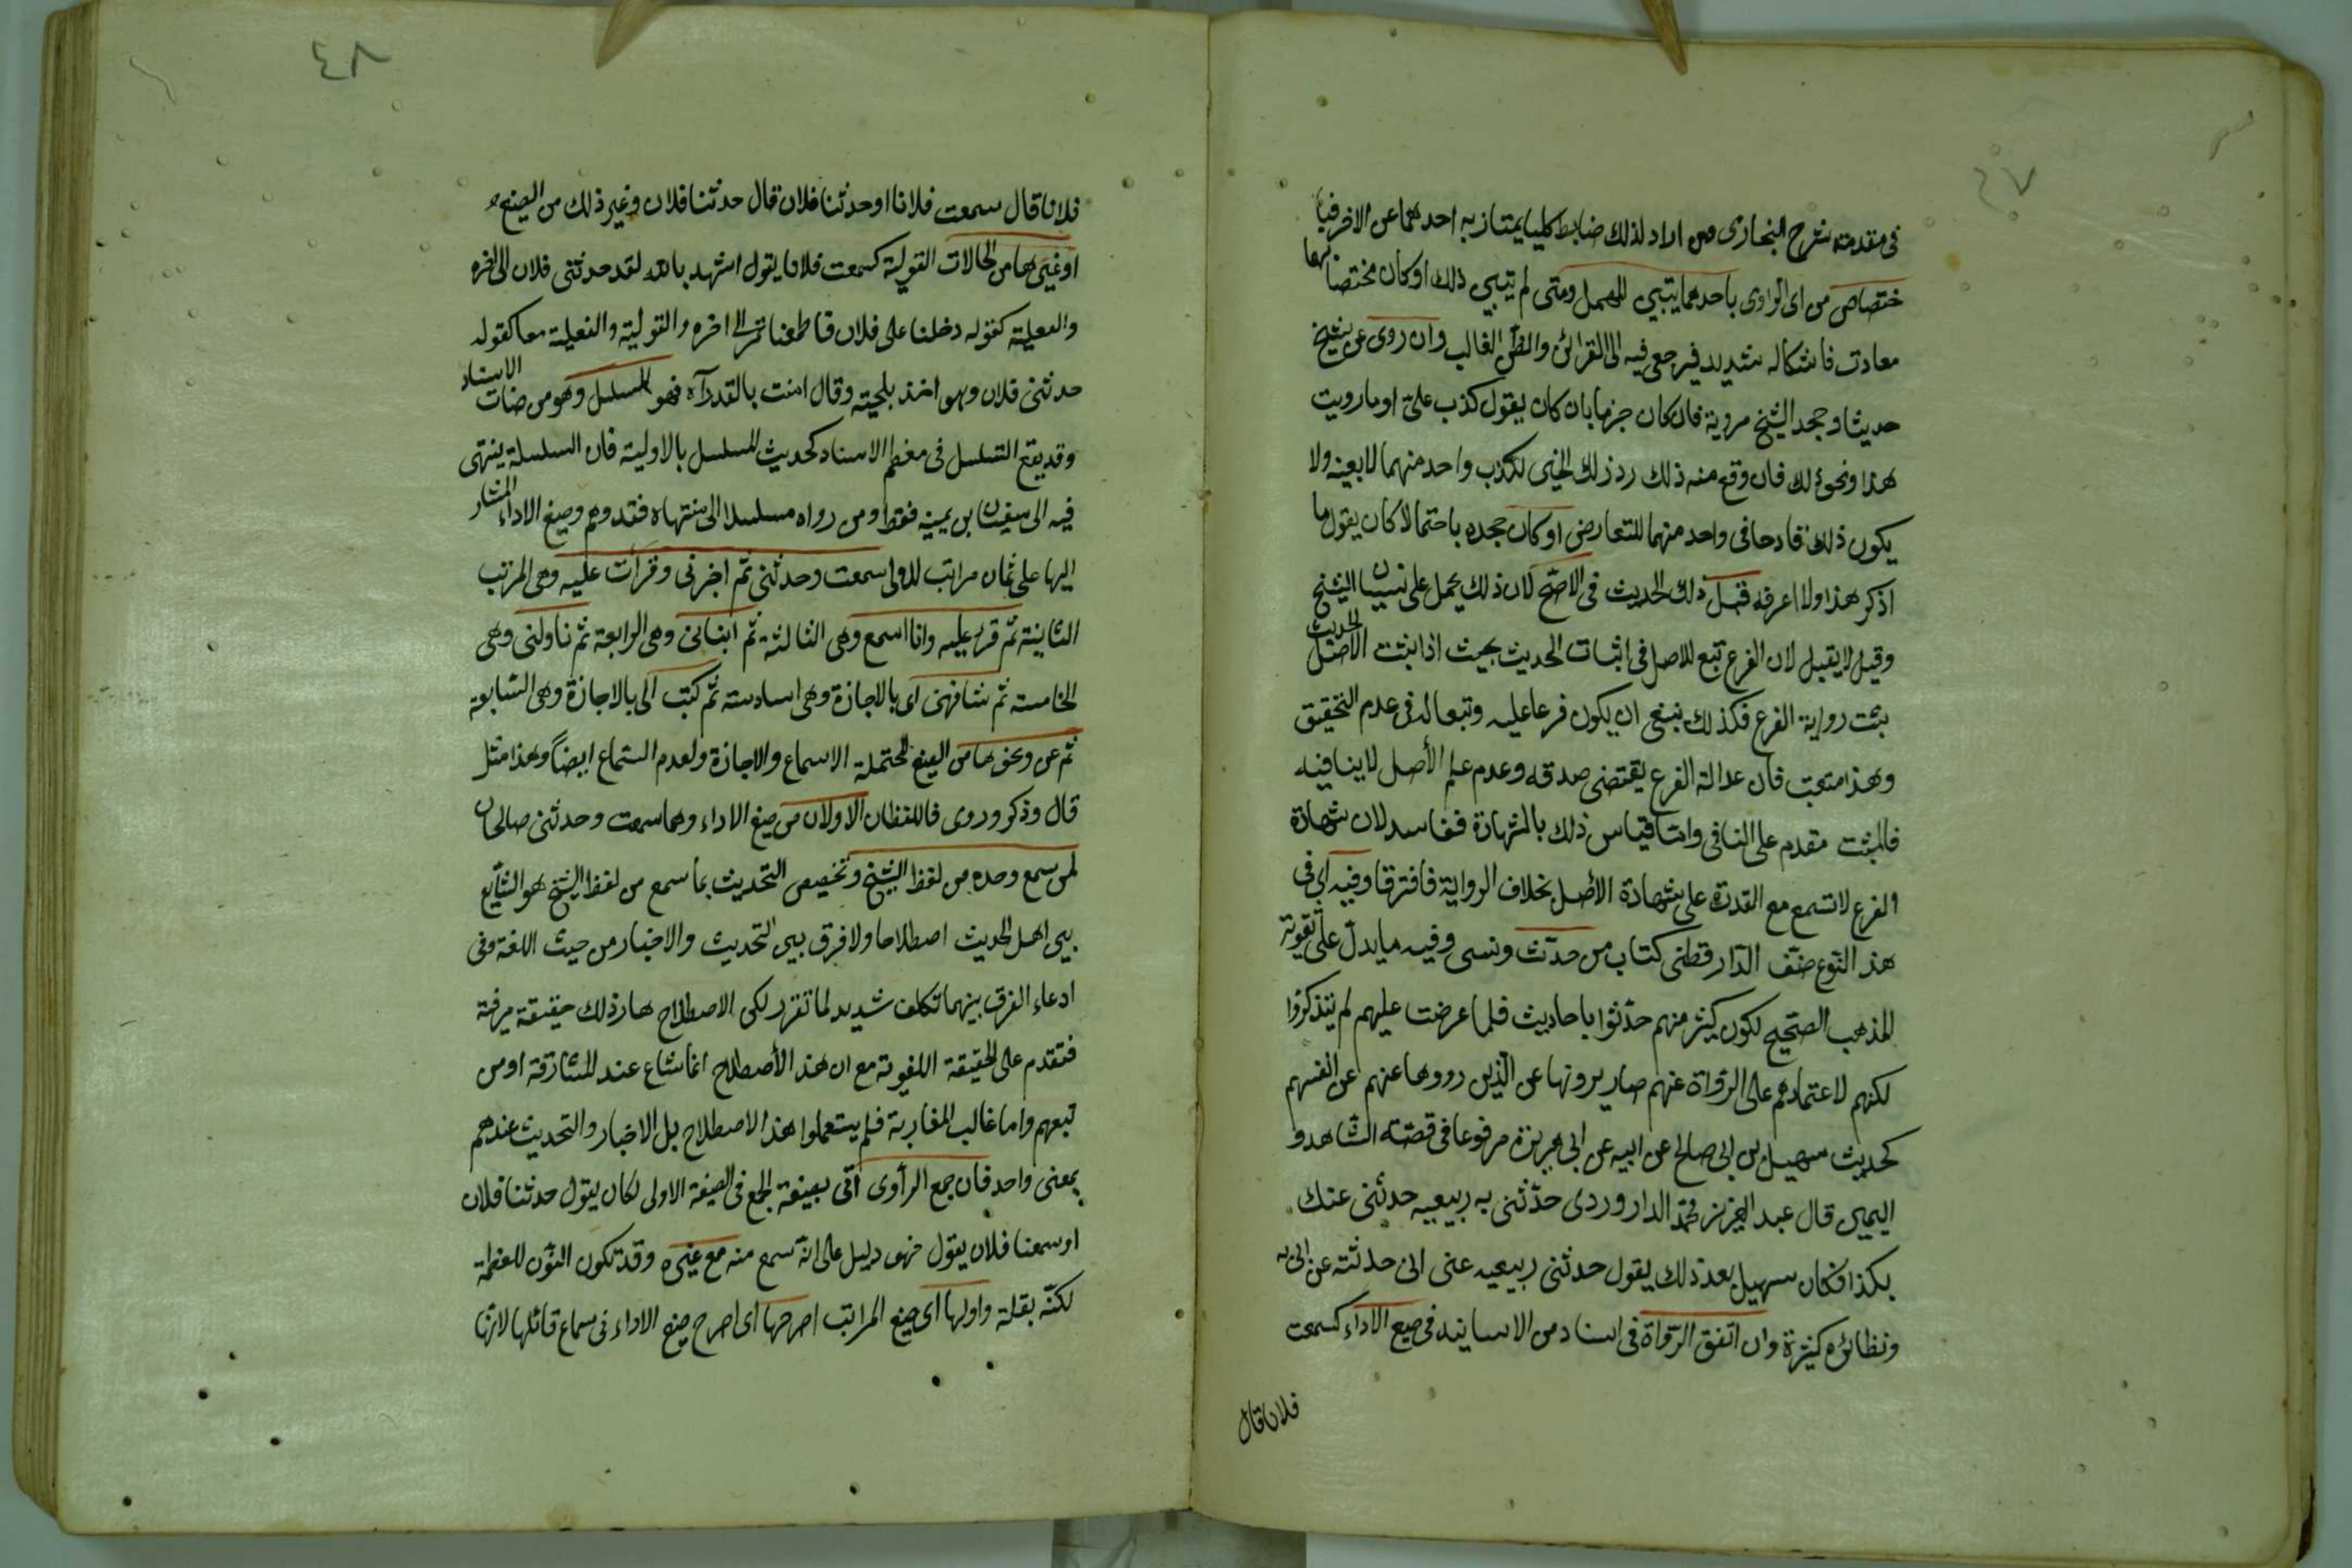 ٤٧
فى مقدمته شرح البخارى ومن اراد لذلك ضابطا كليا يمتاز به احدهما عن الاخر فبا
ختصاص من اى الراوى باحدهما يتبين المهمل ومتى لم يتبين ذلك او كان مختصا بهما
معا دت فاشكاله شديد فيرجع فيه الى القرائن والظن الغالب وان روى عن شيخ
حديثا وجحد الشيخ مروية فان كان جزما بان كان يقول كذب على او ما رويت
هذا ونحو ذلك فان وقع منه ذلك رد ذلك الخبر لكذب واحد منهما لا بعينه ولا
يكون ذلك قادحا فى واحد منهما للتعارض او كان جحده باحتمالا كان يقول ما
اذكر هذا ولا اعرفه قبل ذلك الحديث فى الاصح لان ذلك يحمل على نسيان الشيخ
وقيل لا يقبل لان الفرع تبع للاصل فى اثبات الحديث بحيث اذا اثبت الاصل الحديث
يثبت رواية الفرع فكذلك ينبغى ان يكون فرعا عليه وتبعا له فى عدم التحقيق
وهذا متعب فان عدالة الفرع يقتضى صدقه وعدم علم الأصل لا ينافيه
فالمثبت مقدم على النافى وامّا قياس ذلك بالشهادة ففاسد لان شهادة
الفرع لا تسمع مع القدرة على شهادة الأصل بخلاف الرواية فافترقا وفيه اى فى
هذ النوع صنّف الدّار قطنى كتاب من حدّث ونسى وفيه ما يدلّ على تقوية
المذهب الصّحيح لكون كثير منهم حدّثوا باحاديث فلما عرضت عليهم لم يتذكروا
لكنهم لاعتمادهم على الرّواة عنهم صار يرونها عن الّذين رووها عنهم عن انفسهم
كحديث سهيل بن ابى صالح عن ابيه عن ابى هريرة مرفوعا فى قصّة الشاهد و
اليمين قال عبد العزيز محمّد الدار وردى حدّثنى به ربيعيه حدثنى عنك
بكذا فكان سهيل بعد ذلك يقول حدثنى ربيعيه عنى انى حدثته عن ابى به
ونظائره كثيرة وان اتفق الرّواة فى اسناد من الاسانيد فى صيغ الاداء كسمعت
فلان قال
٤٨
فلانا قال سمعت فلانا او حدثنا فلان قال حدثنا فلان وغير ذلك من الصيغ
او غيرها من الحالات القولية كسمعت فلانا يقول اشهد بالله لقد حدثنى فلان الى اخره
والفعلية كقوله دخلنا على فلان فاطعمنا تمرا الى اخره والقولية والفعلية معا كقوله
حدثنى فلان وهو اخذ بلحيته وقال امنت بالقدر آه فهو المسلسل وهو من صفات الاسناد
وقد يقع التسلسل فى معظم الاسناد كحديث المسلسل بالاولية فان السلسلة ينتهى
فيه الى سفيان بن عيينه فقط ومن رواه مسلسلا الى منتهاه فقد وهم وصيغ الاداء المشار
اليها على ثمان مراتب للاولى سمعت وحدثنى ثم اخبرنى وقرأت عليه وهى المرتب
الثانية ثم قرئ عليه وانا اسمع وهى الثالثة ثم انبأنى وهى الرابعة ثم ناولنى وهى
الخامسة ثم شافهنى اى بالاجازة وهى اسادسة ثم كتب الى بالاجازة وهى السّابعة
ثم عن ونحوها من الصيغ المحتملة الاسماع والاجازة ولعدم السّماع ايضاً وهذا مثل
قال وذكر وروى فاللفظان الاولان من صيغ الاداء وهما سمعت وحدثنى صالحان
لمن سمع وحده من لفظ الشيخ وتخصيص التحديث بما سمع من لفظ الشيخ هو الشّايع
بين اهل الحديث اصطلاحا ولا فرق بين التحديث والاخبار من حيث اللغة وفى
ادعاء الفرق بينهما تكلف شديد لما تقرر لكن الاصطلاح هارذلك حقيقة عرفة
فتقدم على الحقيقة اللغوية مع ان هذ الأصطلاح انما شاع عند المشارقة او من
تبعهم واما غالب المغاربة فلم يستعملوا هذ الاصطلاح بل الاخبار والتحديث عندهم
بمعنى واحد فان جمع الرأوى اتى بصيغة الجمع فى الصيغة الاولى لكان يقول حدثنا فلان
او سمعنا فلان يقول فهو دليل على انّه سمع منه مع غيره وقد تكون النّون للعظمة
لكنّه بقلة واولها اى صيغ المراتب اصرحها اى اصرح صيغ الاداء فى سماع قائلها لانها